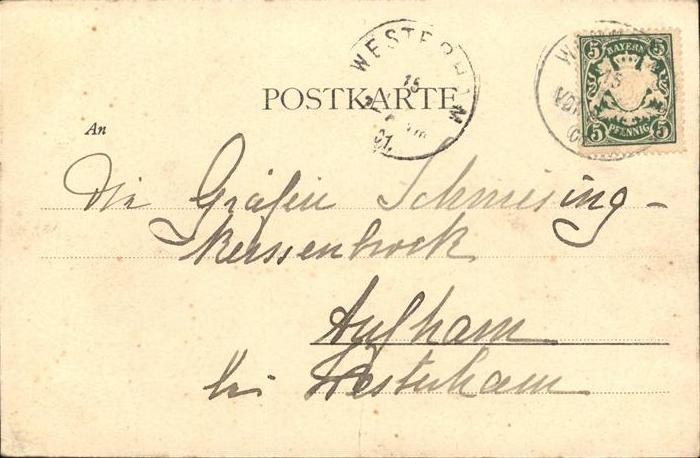 WESTERHAM
15
01.
5 BAYERN 5
5 PFENNIG 5
15
POSTKARTE
An
Die Gräfin Schmesing-
Kerssenbrock
Aufham
bei Westerham